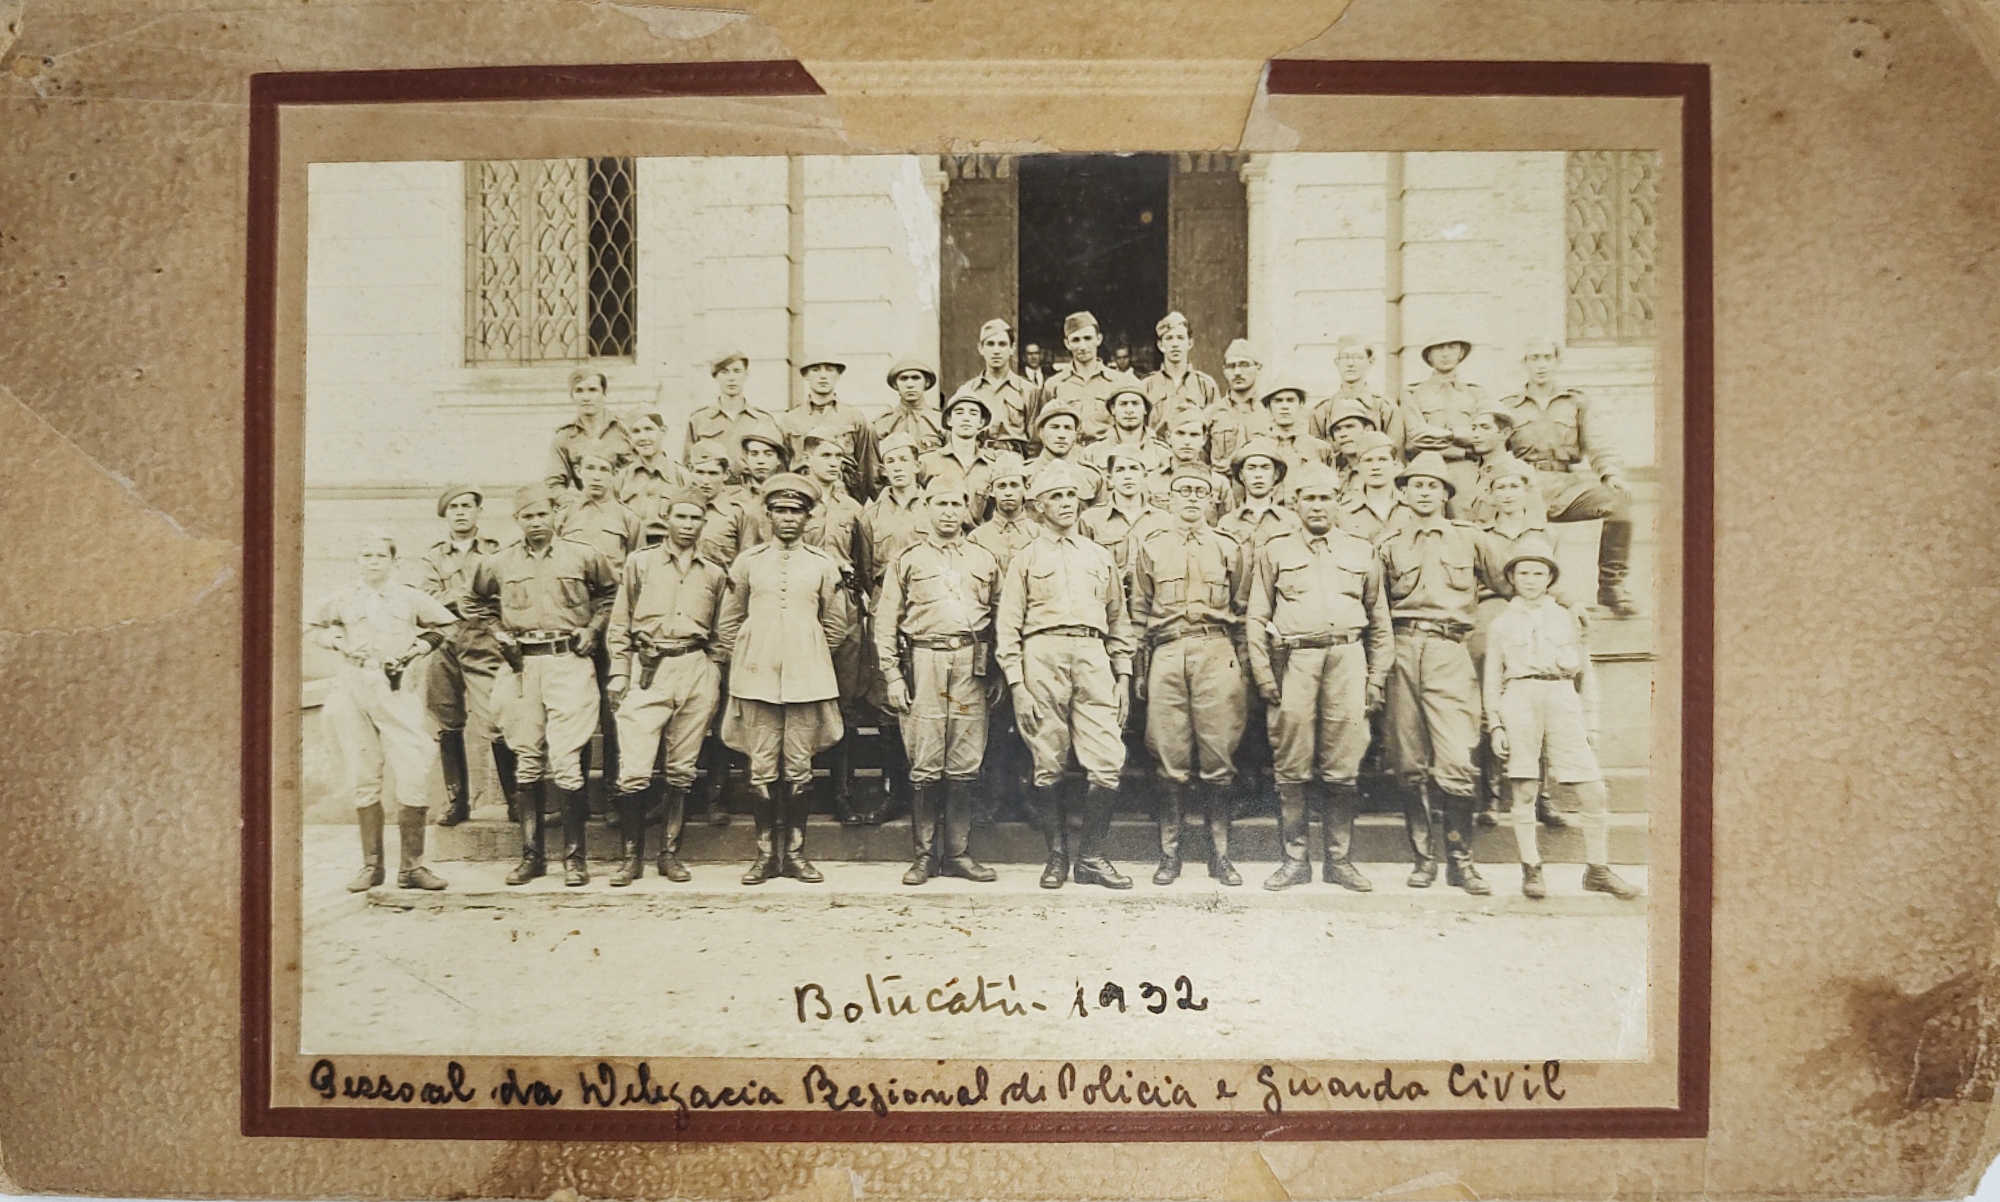 Botucátú - 1932
Pessoal da Delegacia Regional de Policia e Guarda Civil